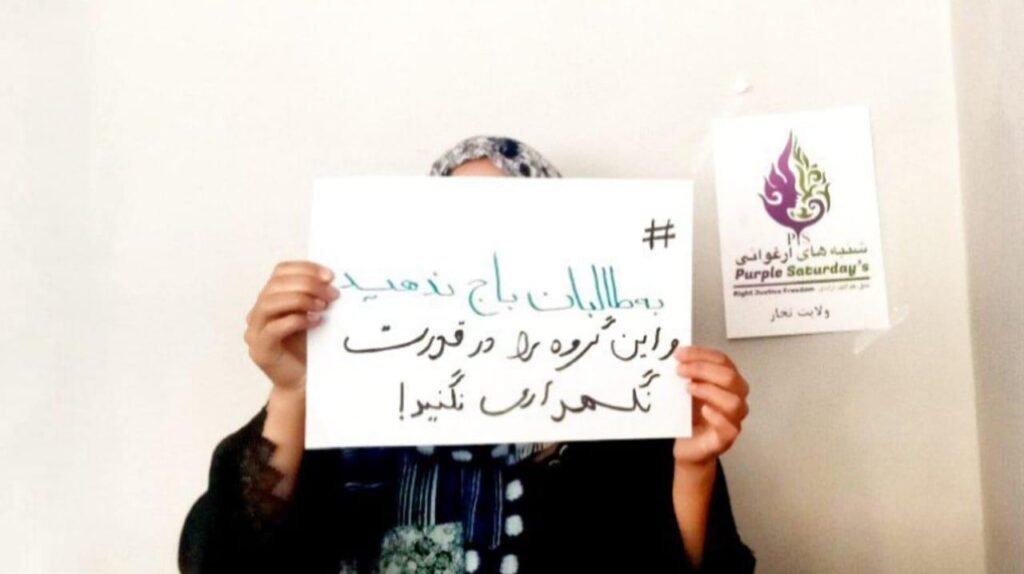 #
به طالبان باج ندهید
و این گروه را در قدرت
نگهداری نکنید!
PS
شنبه های ارغوانی
Purple Saturday's
Right Justice Freedom
ولایت تخار